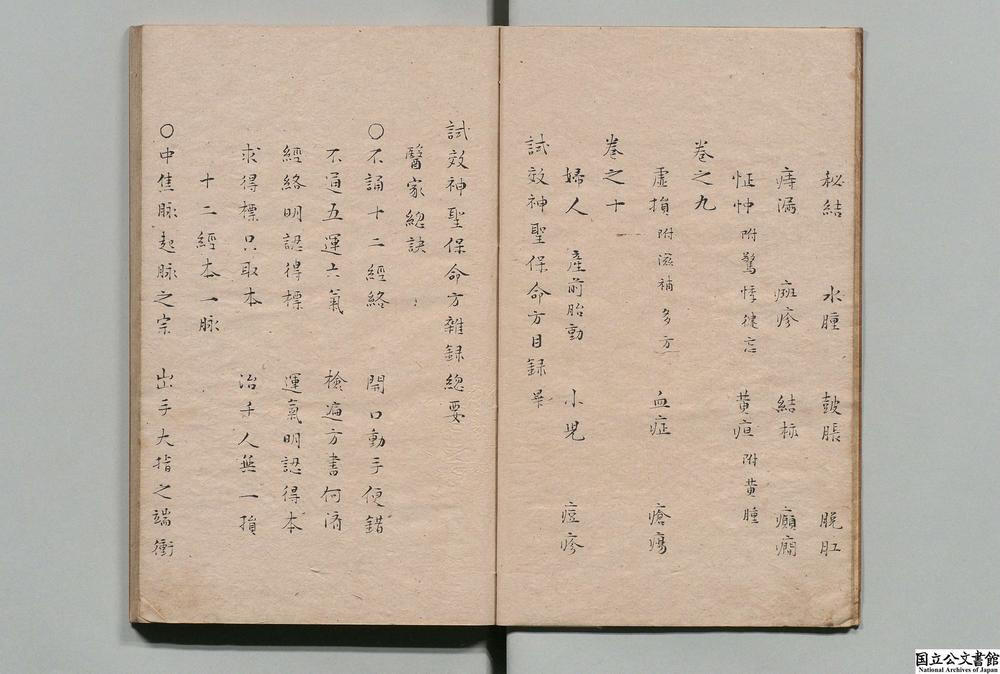 秘結 水腫 鼓脹 脫肛
痔漏 斑疹 結核 癲癇
怔忡附驚悸健忘 黄疸附黄腫
巻之九
虚損附滋補多方 血症 瘡瘍
巻之十
婦人 産前胎動 小児 痘疹
試效神聖保命方目録畢
試效神聖保命方雜録總要
醫家總訣
○不誦十二經絡 開口動手便錯
不通五運六氣 檢遍方書何濟
經絡明認得標 運氣明認得本
求得標只取本 治千人無一損
十二經本一脉
○中焦脉起脉之宗 出手大指之端衝
国立公文書館
National Archives of Japan